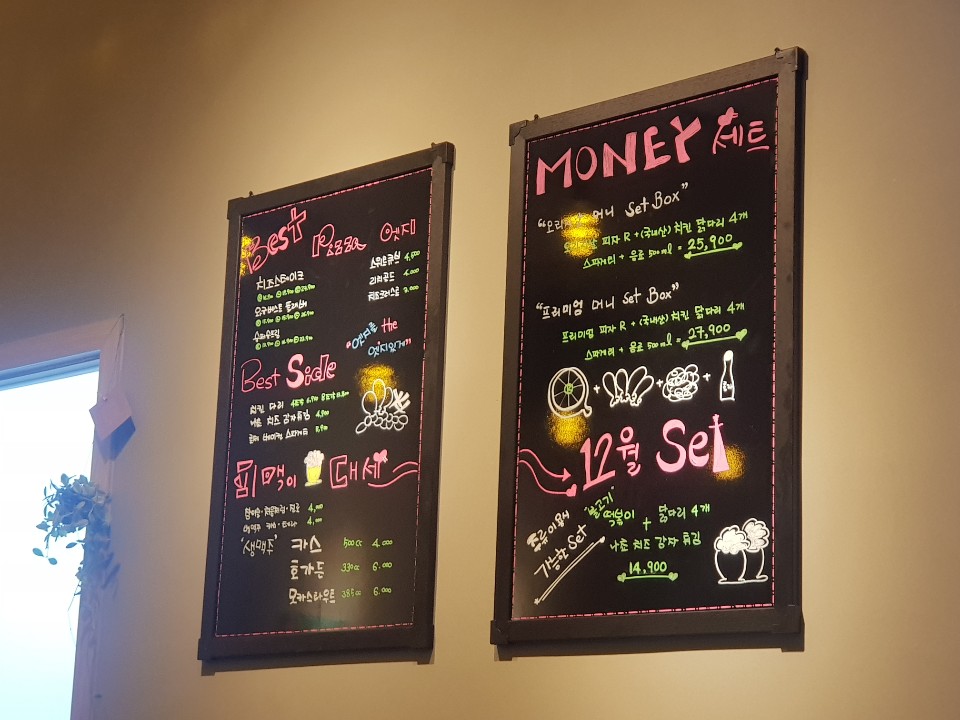 Best Pizza 엣지
치즈스테이크
스위트큐브 4,500
리치골드 4,000
치즈크러스트 3,000
"엣지를 the
엣지있게"
Best Side
치킨 다리
나쵸 치즈 감자튀김 4,900
피맥이 대세
4,000
4,000
'생맥주' 카스 500cc 4,000
호가든 330cc 6,000
모카스타우트 385cc 6,000
MONEY 세트
"오리지날 머니 Set Box"
피자 R + (국내산) 치킨 닭다리 4개
스파게티 + 음료 500ml = 25,900
"프리미엄 머니 Set Box"
프리미엄 피자 R + (국내산) 치킨 닭다리 4개
스파게티 + 음료 500ml = 27,900
12월 Set
주류이용시
가능한 Set
'불고기'
떡볶이 + 닭다리 4개
나쵸 치즈 감자튀김
14,900